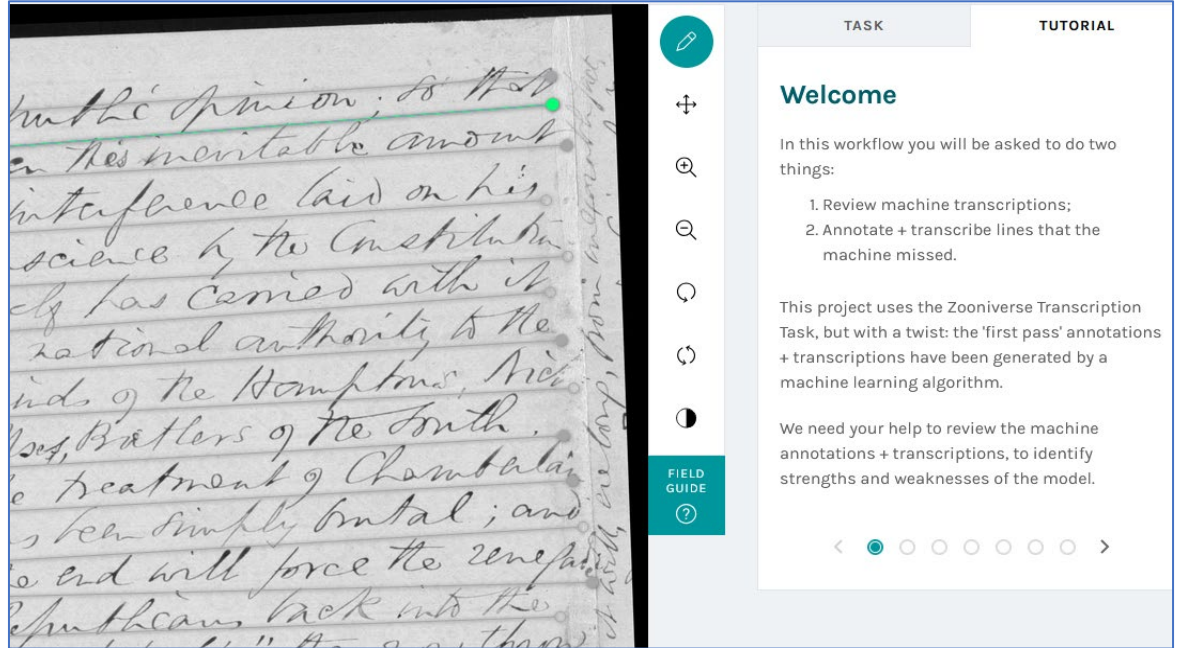 public opinion; so that
en this inevitable amount
interference laid on his
science by the Constitution
elf has carried with it
national authority to the
inds of the Hamptons, Rich
Butlers of the South.
e treatment of Chamberlain
s been simply brutal; and
e end will force the renegade
epublicans back into the
FIELD
GUIDE
?
TASK
TUTORIAL
Welcome
In this workflow you will be asked to do two
things:
1. Review machine transcriptions;
2. Annotate + transcribe lines that the
machine missed.
This project uses the Zooniverse Transcription
Task, but with a twist: the 'first pass' annotations
+ transcriptions have been generated by a
machine learning algorithm.
We need your help to review the machine
annotations + transcriptions, to identify
strengths and weaknesses of the model.